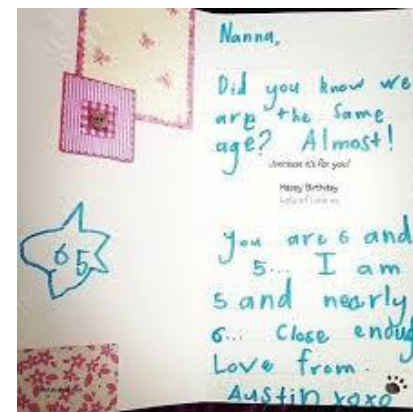 Nanna,
Did you know we
are the same
age? Almost!
because it's for you!
Happy Birthday
65
you are 6 and
5... I am
5 and nearly
6... Close
Love from.
Austin xoxo